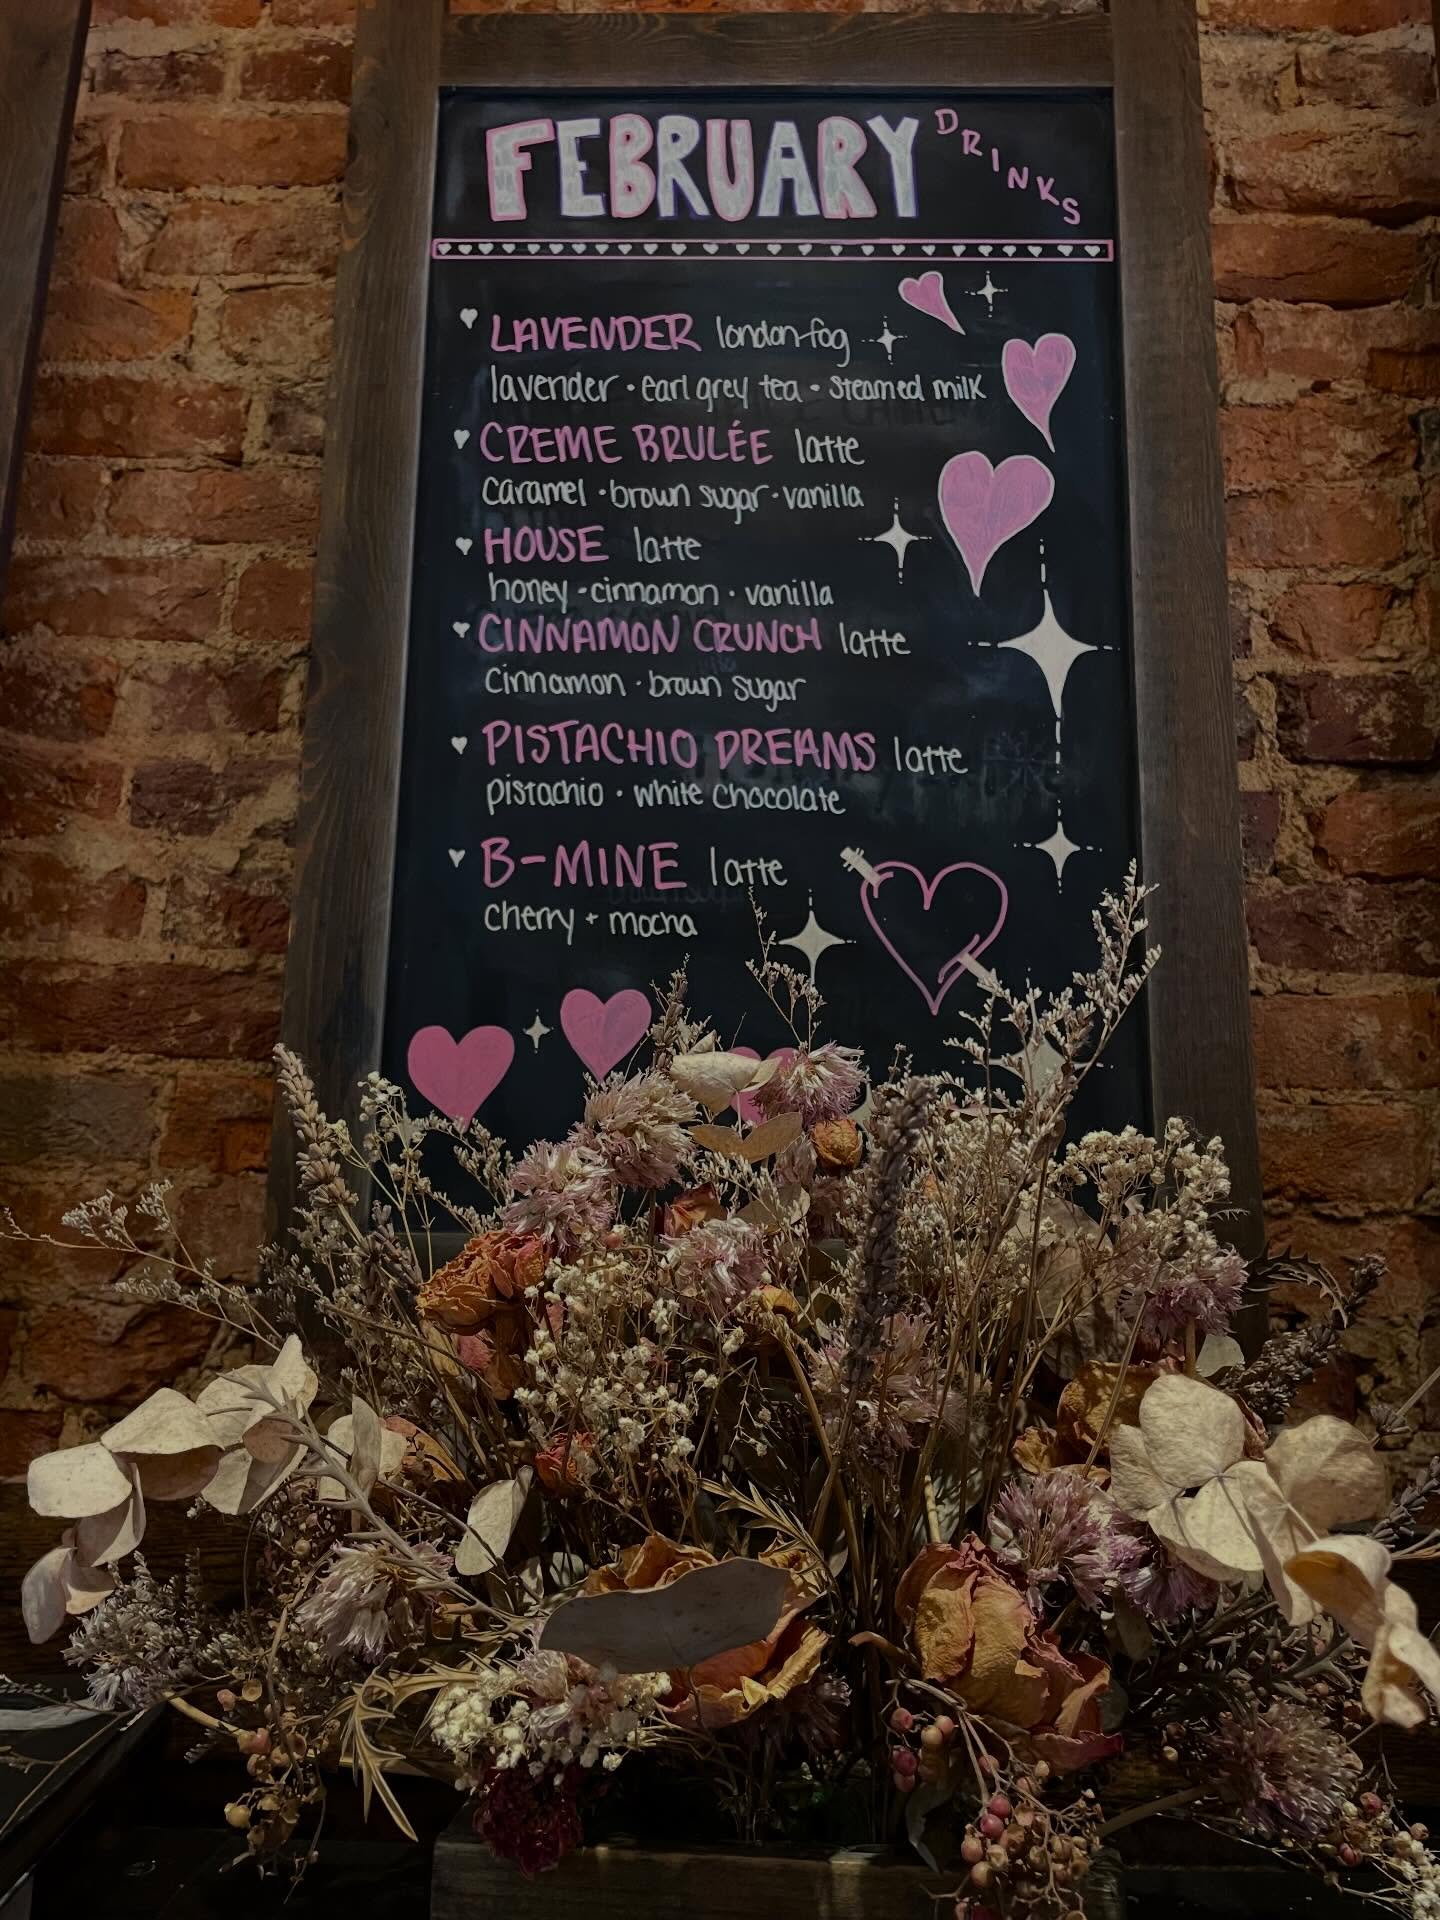 FEBRUARY DRINKS
LAVENDER london fog
lavender • earl grey tea • steamed milk
CREME BRULÉE latte
caramel • brown sugar • vanilla
HOUSE latte
honey • cinnamon • vanilla
CINNAMON CRUNCH latte
cinnamon • brown sugar
PISTACHIO DREAMS latte
pistachio • white chocolate
B-MINE latte
cherry + mocha